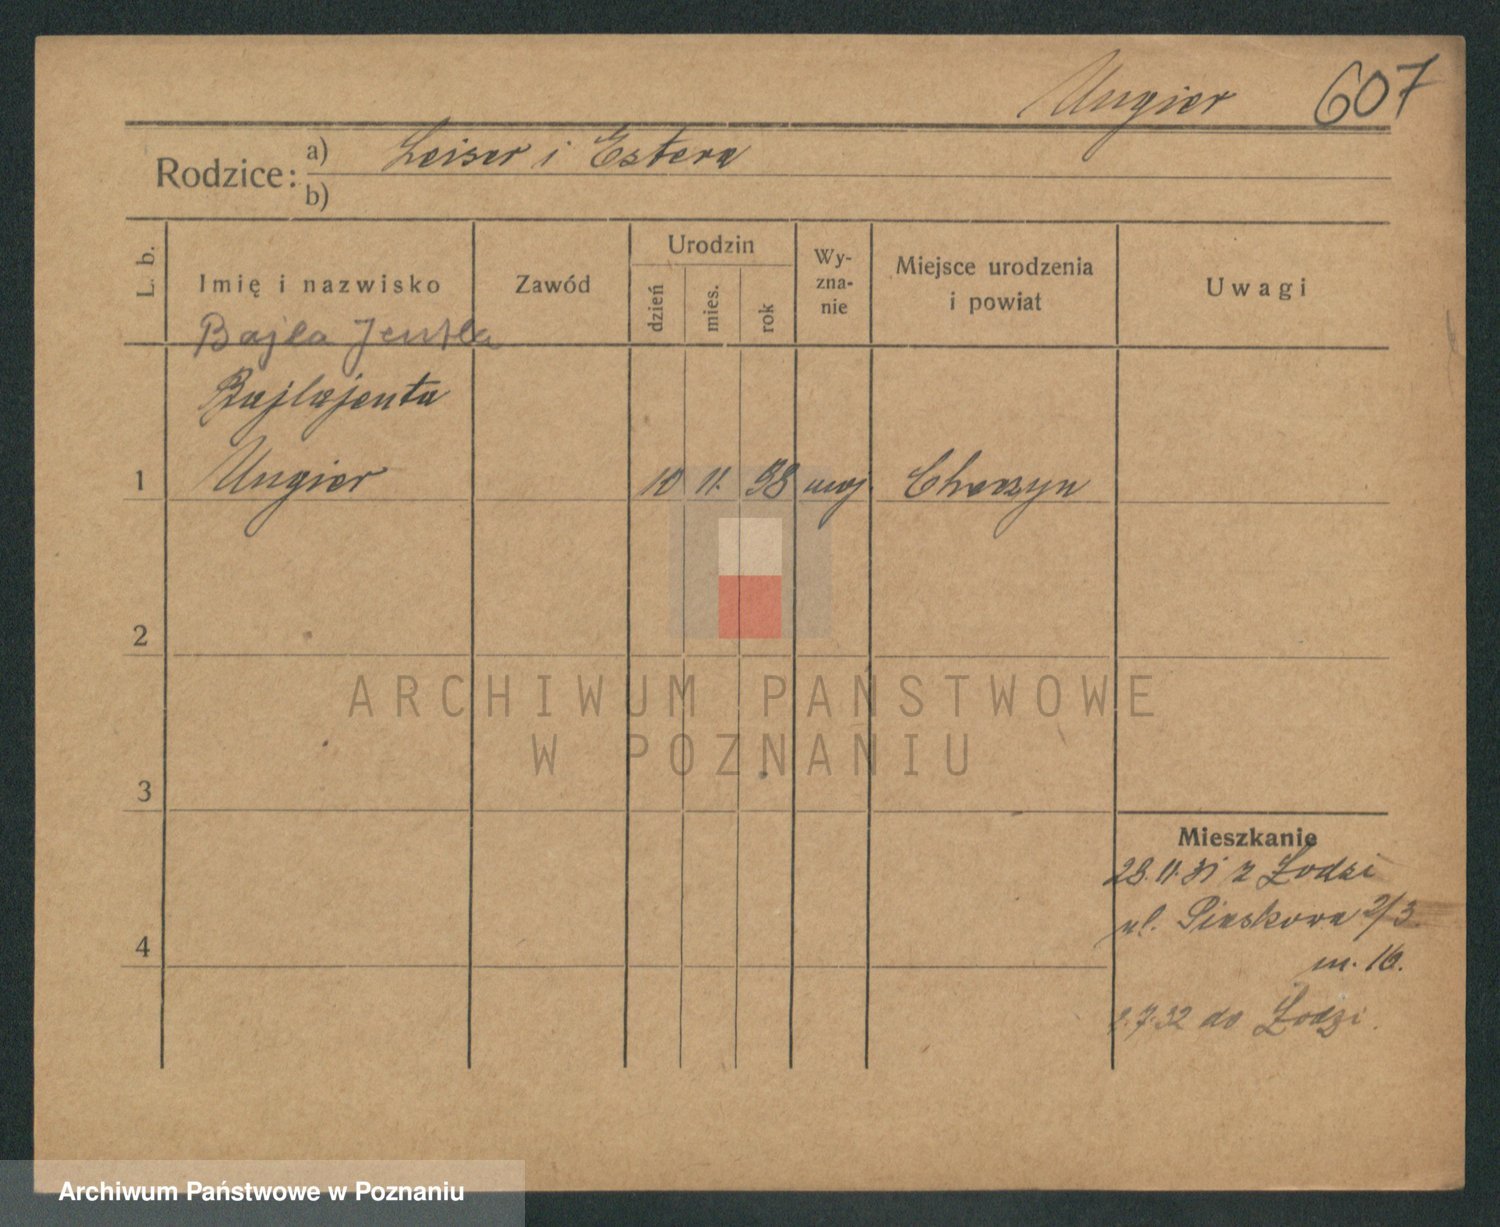 Ungier 607
Rodzice: a) Leiser i Estera
b)
L. b.
Imię i nazwisko
Zawód
Urodzin
dzień
mies.
rok
Wy-
zna-
nie
Miejsce urodzenia
i powiat
Uwagi
Bajla Jentla
Bajlajenta
1 Ungier 10 11. 98 moj.
2
3
4
Mieszkanie
28.11.31 z Łodzi
ul. Piaskowa 2/3
m. 16.
7.32 do Łodzi.
ARCHIWUM PAŃSTWOWE
W POZNANIU
Archiwum Państwowe w Poznaniu